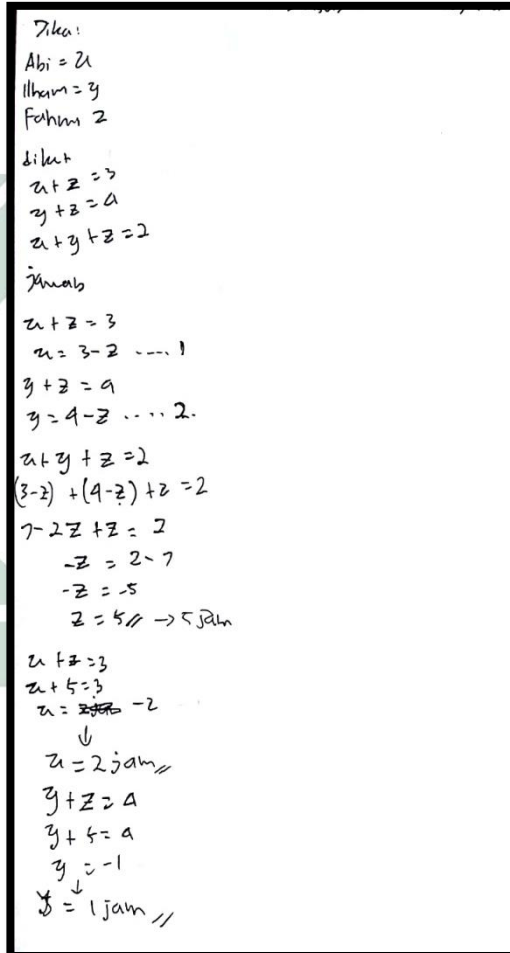 Dika:
Abi = x
Ilham = y
Fahm z
diket
x + z = 3
y + z = 4
x + y + z = 2
jawab
x + z = 3
x = 3 - z .... 1
y + z = 4
y = 4 - z .... 2.
x + y + z = 2
(3-z) + (4-z) + z = 2
7 - 2z + z = 2
-z = 2 - 7
-z = -5
z = 5 // → 5 jam
x + z = 3
x + 5 = 3
x = -2
↓
x = 2 jam //
y + z = 4
y + 5 = 4
y = -1
↓
y = 1 jam //